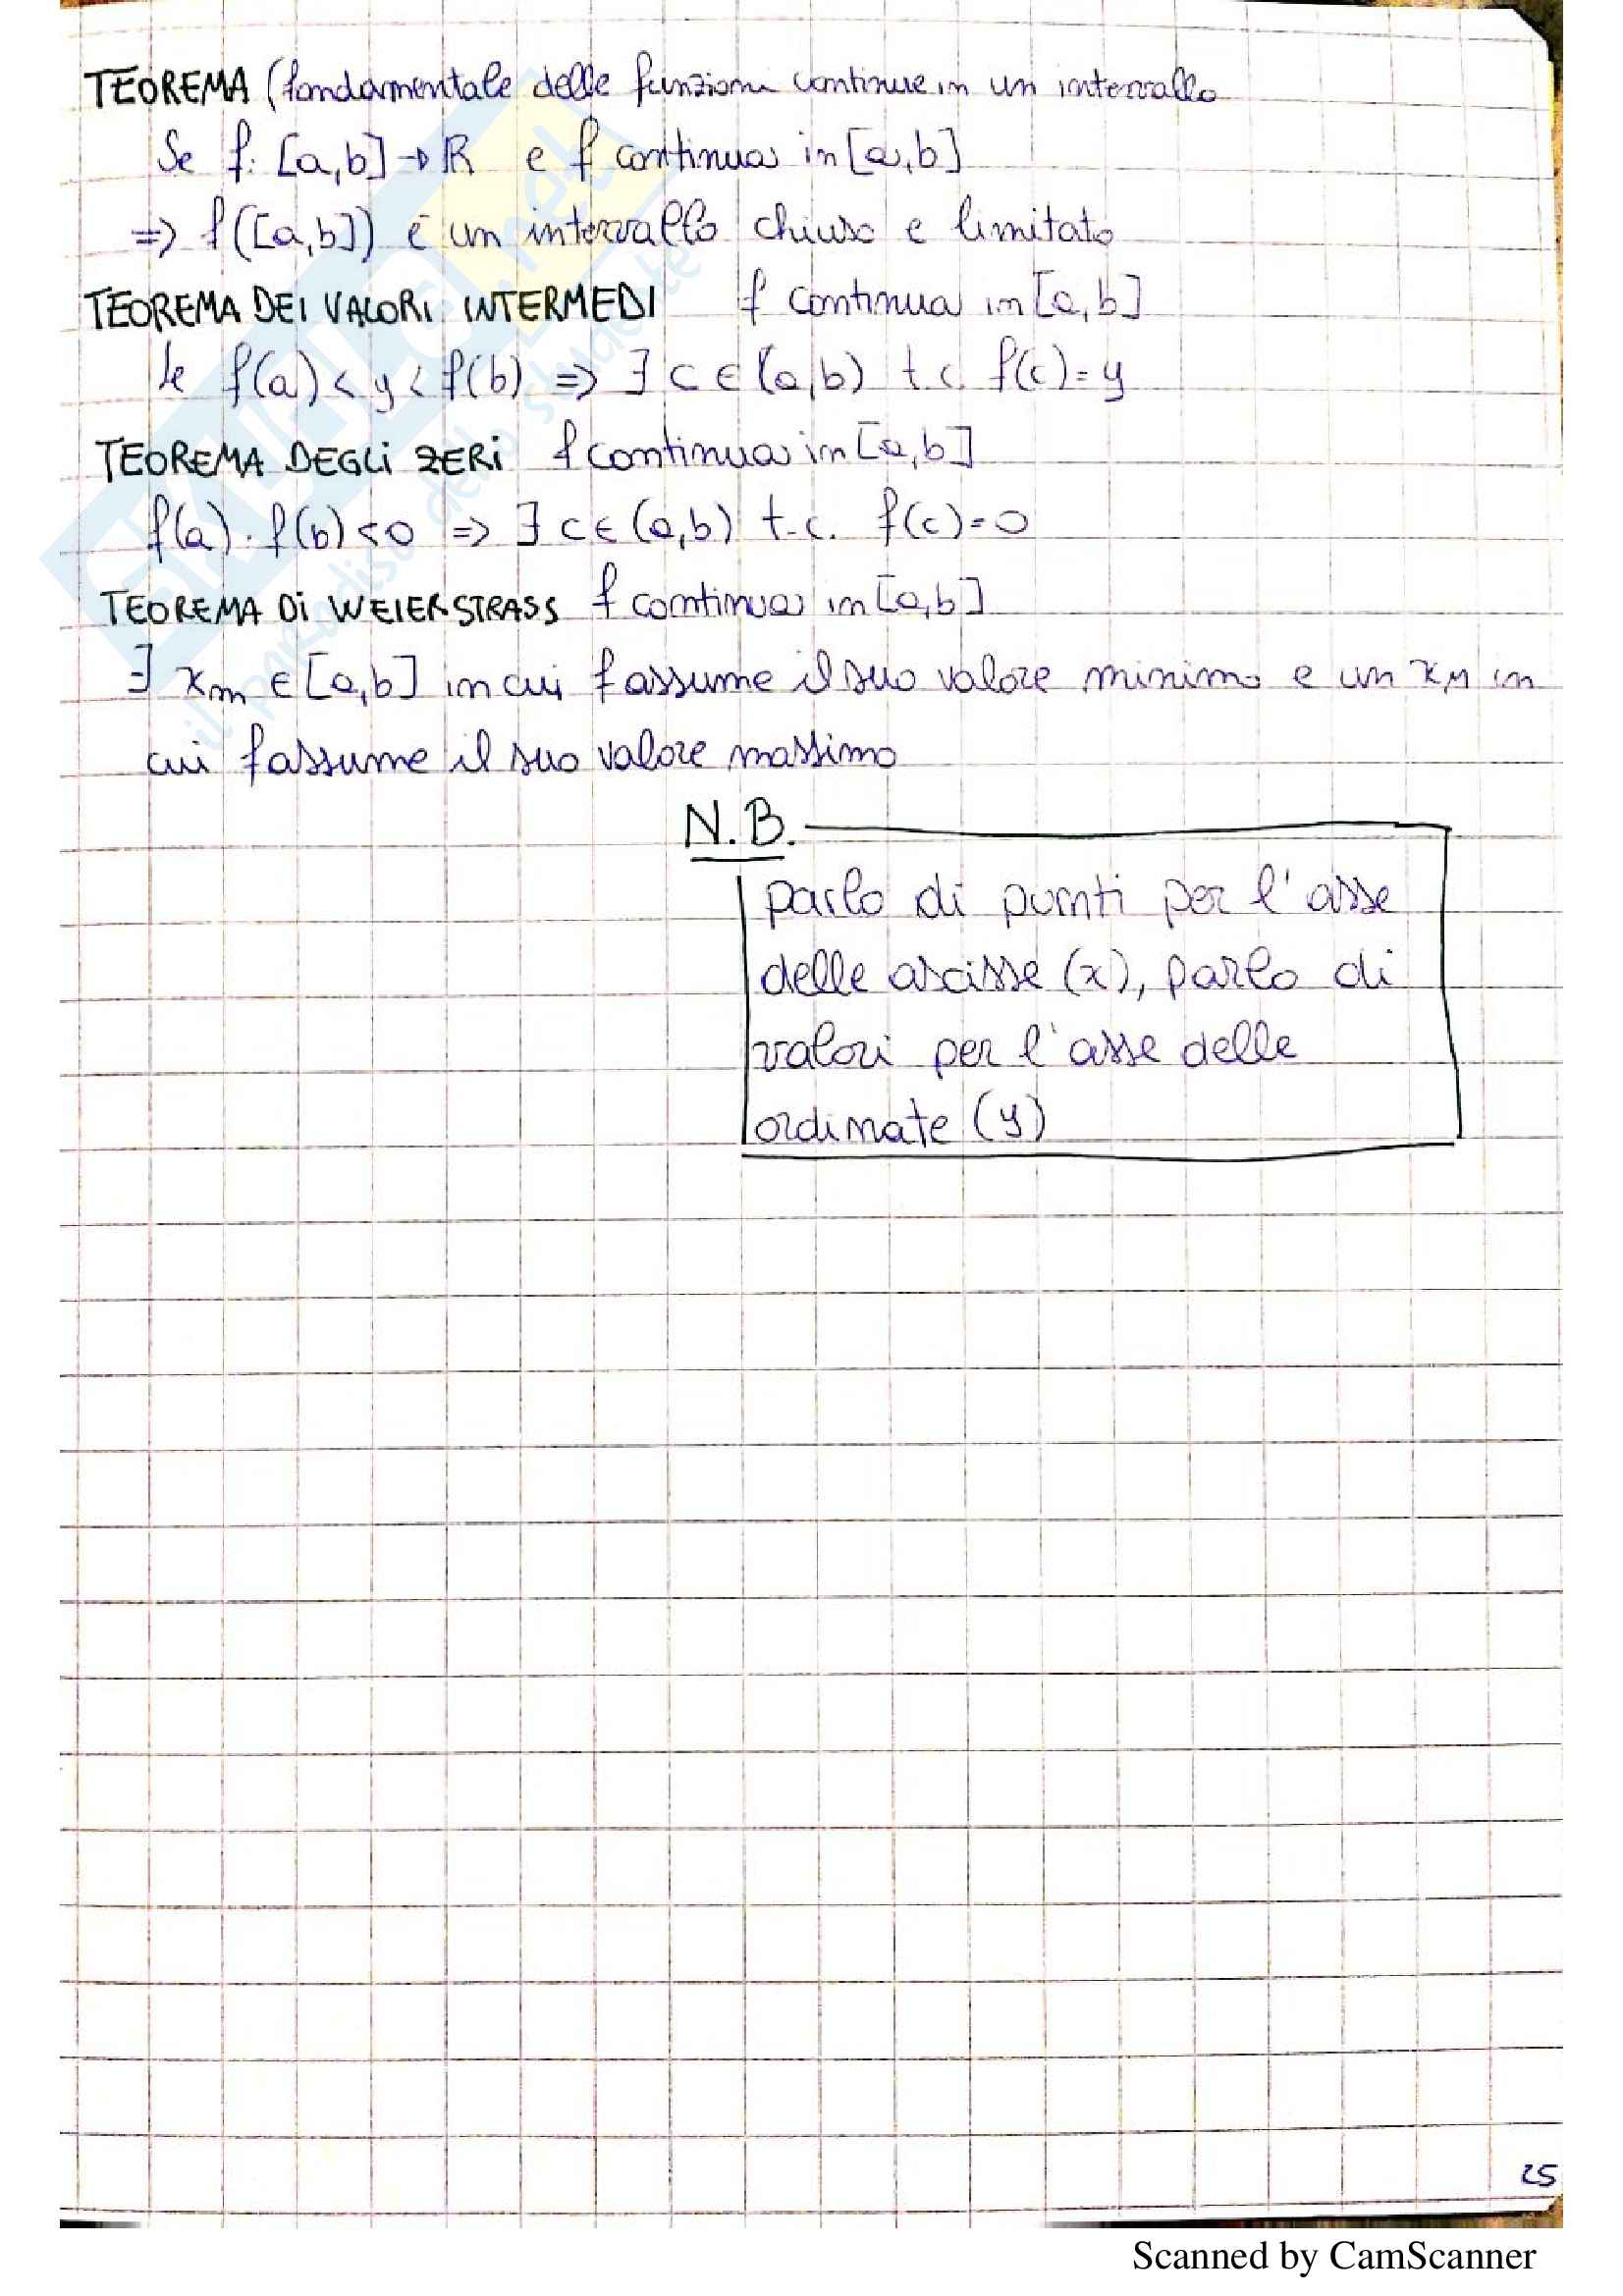 TEOREMA (fondamentale delle funzioni continue in un intervallo
Se f: [a,b] → R e f continua in [a,b]
⇒ f([a,b]) è un intervallo chiuso e limitato
TEOREMA DEI VALORI INTERMEDI f continua in [a,b]
Se f(a) < y < f(b) ⇒ ∃ c ∈ (a,b) t.c. f(c) = y
TEOREMA DEGLI ZERI f continua in [a,b]
f(a) · f(b) < 0 ⇒ ∃ c ∈ (a,b) t.c. f(c) = 0
TEOREMA DI WEIERSTRASS f continua in [a,b]
∃ xm ∈ [a,b] in cui f assume il suo valore minimo e un xM in
cui f assume il suo valore massimo
N.B.
parlo di punti per l'asse
delle ascisse (x), parlo di
valori per l'asse delle
ordinate (y)
25
Scanned by CamScanner
SKUOLA.net
il paradiso dello studente